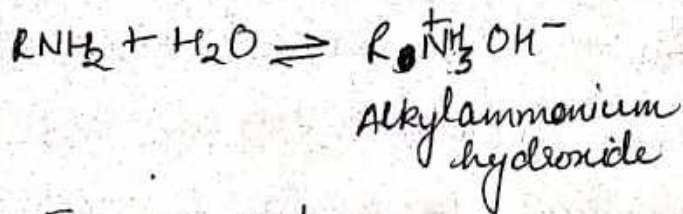 RNH₂ + H₂O ⇌ R N⁺H₃ OH⁻
Alkylammonium
hydroxide